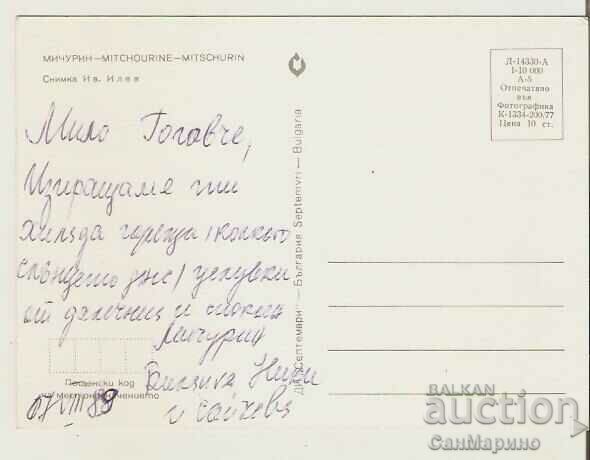 МИЧУРИН—MITCHOURINE—MITSCHURIN
Снимка Ив. Илев
Д-14330-А
I-10 000
А-5
Отпечатано
във
Фотографика
К-1334-200/77
Цена 10 ст.
Мило Гогавче,
Изпращаме ти
хиляда горещи /колкото
слънцето днес/ целувки
от далечния и
Мичурин
Ники
и
VIII 89
Пощенски код
местоназначението
ДП „Септември“ — България Septemvri — Bulgaria
BALKAN
auction
СанМарино